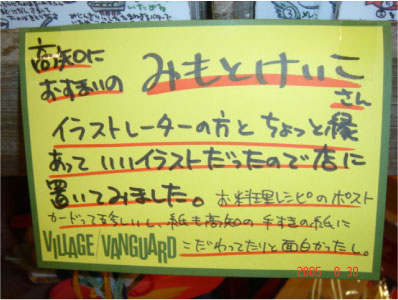 高知に
おすまいの みもとけいこ
さん
イラストレーターの方と ちょっと縁
あって いいイラストだったので店に
置いてみました。お料理レシピのポスト
カードって珍しいし、紙も高知の手すきの紙に
VILLAGE/VANGUARD こだわってたりと面白かったし。